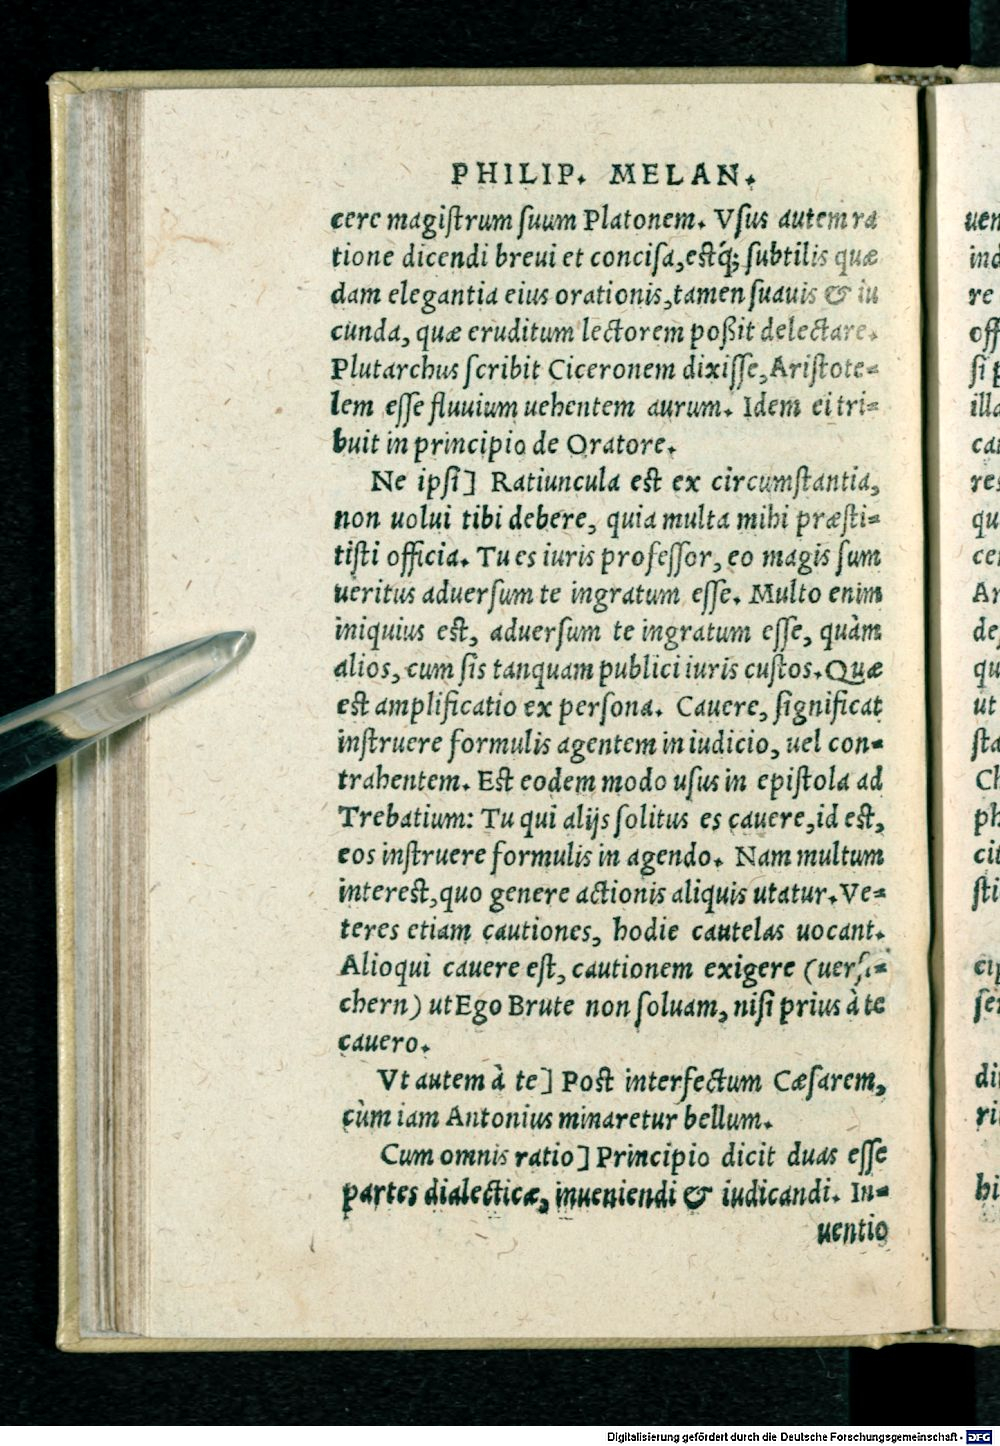 PHILIP. MELAN.
cere magiſtrum ſuum Platonem. Vſus autem ra
tione dicendi breui et conciſa, estq́; ſubtilis quæ
dam elegantia eius orationis, tamen ſuauis & iu
cunda, quæ eruditum lectorem poßit delectare.
Plutarchus ſcribit Ciceronem dixiſſe, Ariſtote=
lem eſſe fluuium uehentem aurum. Idem ei tri=
buit in principio de Oratore.
Ne ipſi] Ratiuncula est ex circumſtantia,
non uolui tibi debere, quia multa mihi præſti=
tiſti officia. Tu es iuris profeſſor, eo magis ſum
ueritus aduerſum te ingratum eſſe. Multo enim
iniquius est, aduerſum te ingratum eſſe, quàm
alios, cum ſis tanquam publici iuris cuſtos. Quæ
est amplificatio ex perſona. Cauere, ſignificat
inſtruere formulis agentem in iudicio, uel con=
trahentem. Est eodem modo uſus in epiſtola ad
Trebatium: Tu qui alijs ſolitus es cauere, id est,
eos inſtruere formulis in agendo. Nam multum
interest, quo genere actionis aliquis utatur. Ve=
teres etiam cautiones, hodie cautelas uocant.
Alioqui cauere eſt, cautionem exigere (uerſi=
chern) ut Ego Brute non ſoluam, niſi prius à te
cauero.
Vt autem à te] Post interfectum Cæſarem,
cùm iam Antonius minaretur bellum.
Cum omnis ratio] Principio dicit duas eſſe
partes dialecticæ, inueniendi & iudicandi. In=
uentio
uen
ind
re
off
ſi p
illa
can
res
qu
cer
Ar
deſ
qu
ut
ſta
Ch
ph
cit
ſti
cip
ſer
di
ri
hi
Digitalisierung gefördert durch die Deutsche Forschungsgemeinschaft - DFG